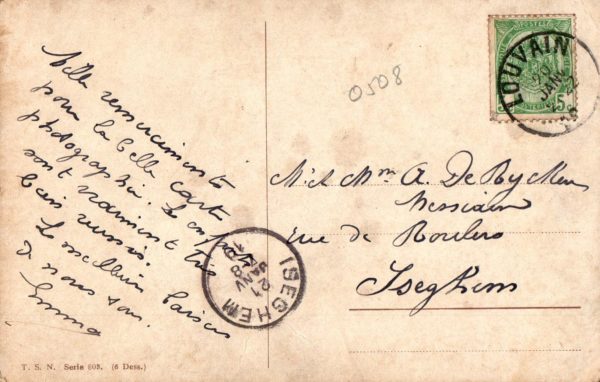 Mille remerciments
pour la belle carte
photographie. Les enfants
sont vraiment très
bien réussis.
Le meilleur baiser
de nous son.
Emma
0508
LOUVAIN
JANV
5c
M. et Mme A. De Rycker
Messiaen
rue de Roulers
Iseghem
ISEGHEM
21
JANV
8
T. S. N. Serie 803. (6 Dess.)